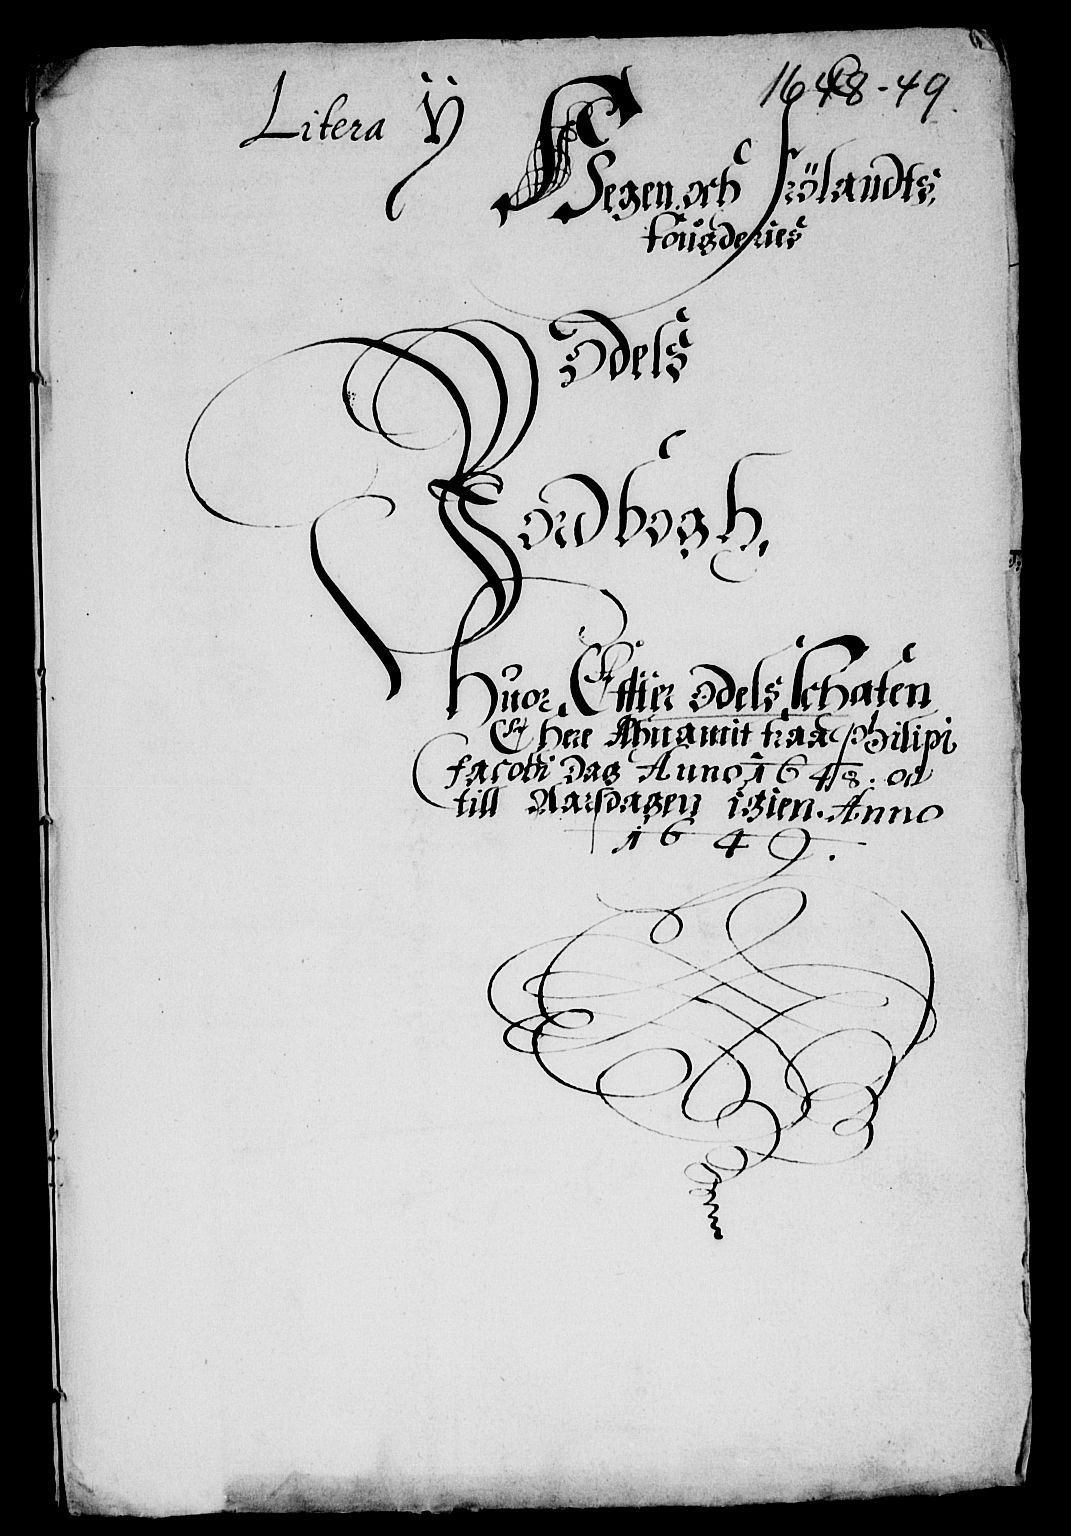 Litera ÿ
1648-49.
Segen och Frölandts,
fougderies
Odels
Jordbogh,
huor Effter Odels schaten
Er here Annamit fraa Philipi
Jacobi Dag Anno 1648. oc
till Aarsdagen igien. Anno
1649.